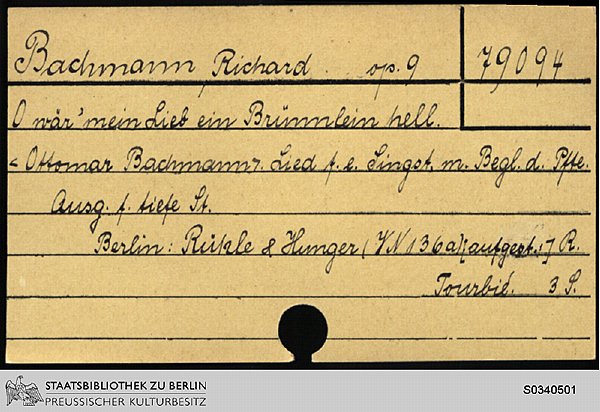 Bachmann, Richard. op. 9 79094
O wär' mein Lieb ein Brünnlein hell.
< Ottomar Bachmann >. Lied f. e. Singst. m. Begl. d. Pfte.
Ausg. f. tiefe St.
Berlin: Rühle & Hunger (VN 136a) [aufgest.:] R.
Tourbié. 3 S.
STAATSBIBLIOTHEK ZU BERLIN
PREUSSISCHER KULTURBESITZ
S0340501